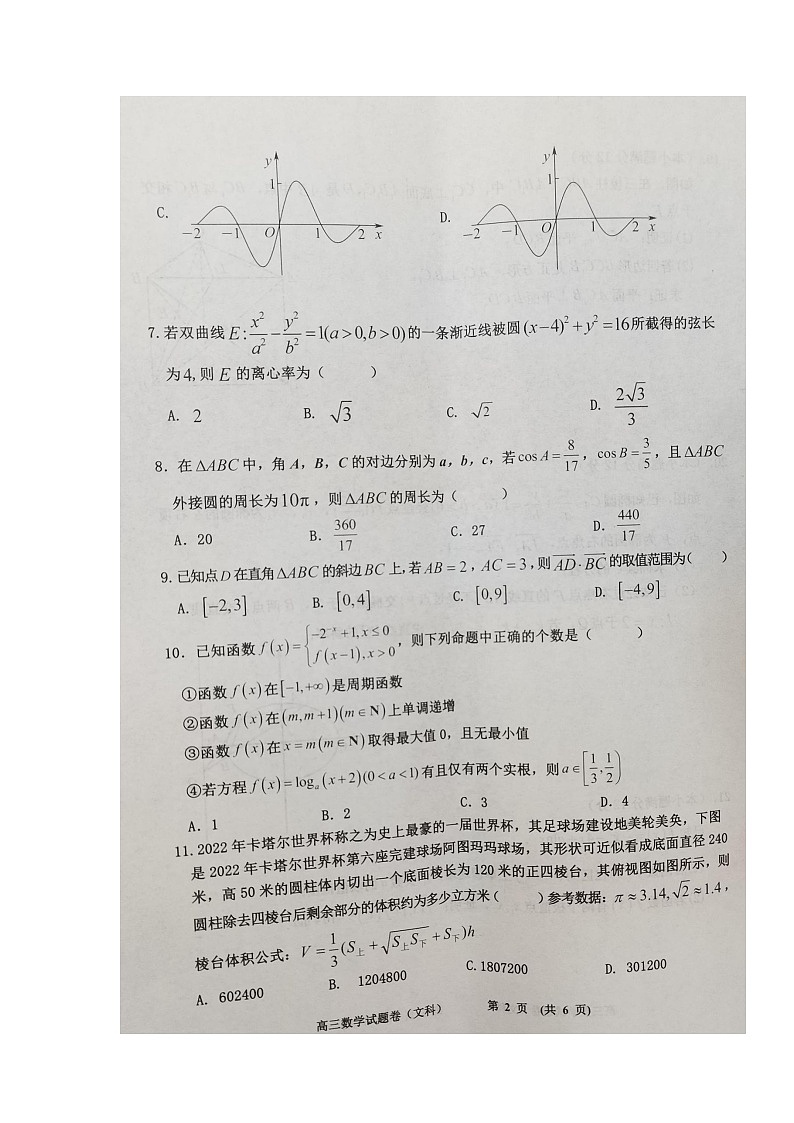 C.
y
1
-2
-1
O
1
2
x
D.
y
1
-2
-1
O
1
2
x
7. 若双曲线 E: x²/a² - y²/b² = 1(a>0,b>0) 的一条渐近线被圆 (x-4)² + y² = 16 所截得的弦长
为 4, 则 E 的离心率为（ ）
A. 2 B. √3 C. √2 D. 2√3/3
8. 在 ΔABC 中，角 A，B，C 的对边分别为 a，b，c，若 cos A = 8/17，cos B = 3/5，且 ΔABC
外接圆的周长为 10π，则 ΔABC 的周长为（ ）
A. 20 B. 360/17 C. 27 D. 440/17
9. 已知点 D 在直角 ΔABC 的斜边 BC 上，若 AB = 2，AC = 3，则 \overrightarrow{AD}·\overrightarrow{BC} 的取值范围为（ ）
A. [-2,3] B. [0,4] C. [0,9] D. [-4,9]
10. 已知函数 f(x) = { -2^{-x} + 1, x ≤ 0; f(x-1), x > 0，则下列命题中正确的个数是（ ）
①函数 f(x) 在 [-1,+∞) 是周期函数
②函数 f(x) 在 (m,m+1)(m∈N) 上单调递增
③函数 f(x) 在 x = m(m∈N) 取得最大值 0，且无最小值
④若方程 f(x) = logₐ(x+2)(0<a<1) 有且仅有两个实根，则 a∈[1/3, 1/2)
A. 1 B. 2 C. 3 D. 4
11. 2022 年卡塔尔世界杯称之为史上最豪的一届世界杯，其足球场建设地美轮美奂，下图
是 2022 年卡塔尔世界杯第六座完建球场阿图玛玛球场，其形状可近似看成底面直径 240
米，高 50 米的圆柱体内切出一个底面棱长为 120 米的正四棱台，其俯视图如图所示，则
圆柱除去四棱台后剩余部分的体积约为多少立方米（ ）参考数据：π≈3.14, √2≈1.4，
棱台体积公式：V = 1/3(S上 + √S上S下 + S下)h
A. 602400 B. 1204800 C. 1807200 D. 301200
高三数学试题卷（文科） 第 2 页 （共 6 页）